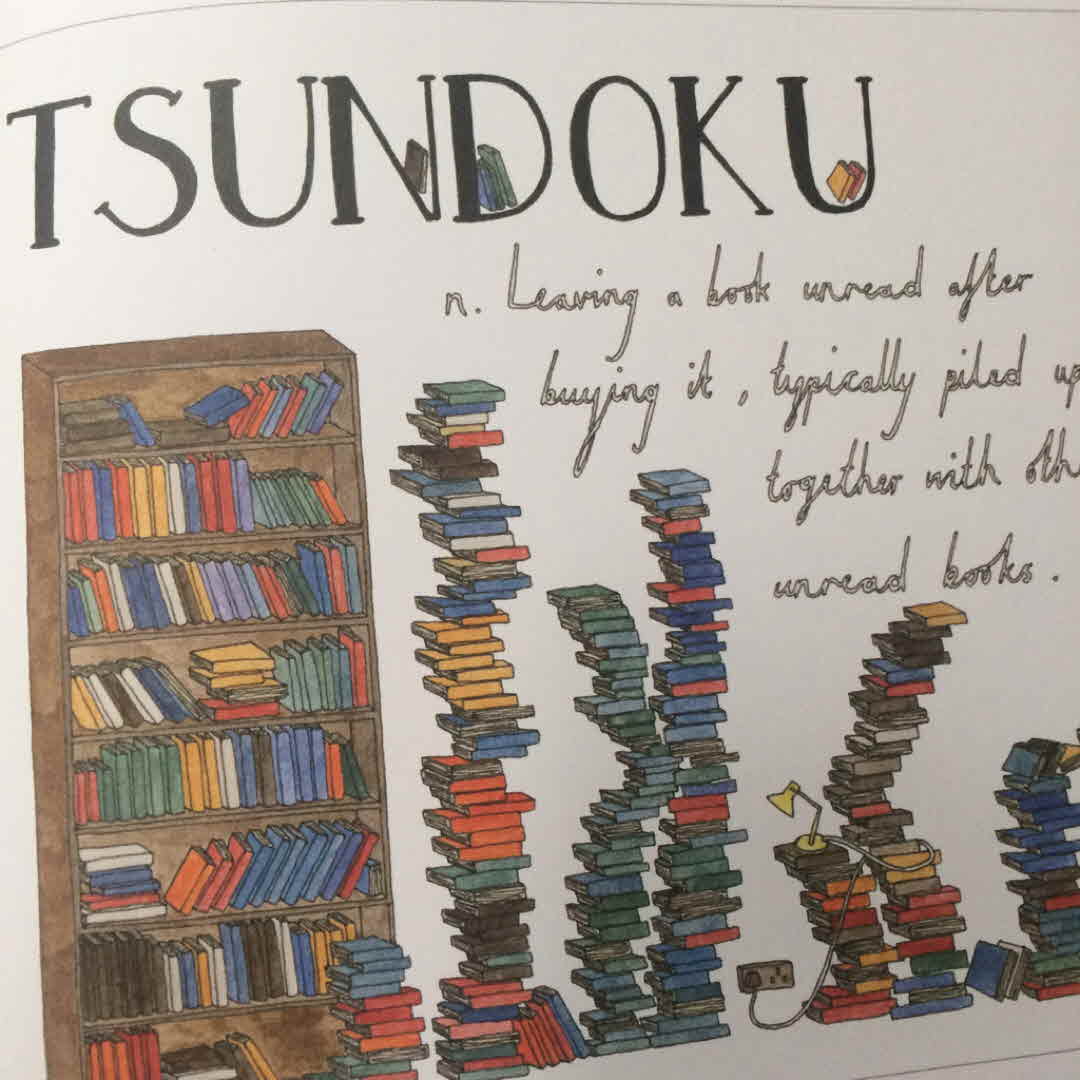 TSUNDOKU
n. Leaving a book unread after
buying it, typically piled up
together with oth
unread books.